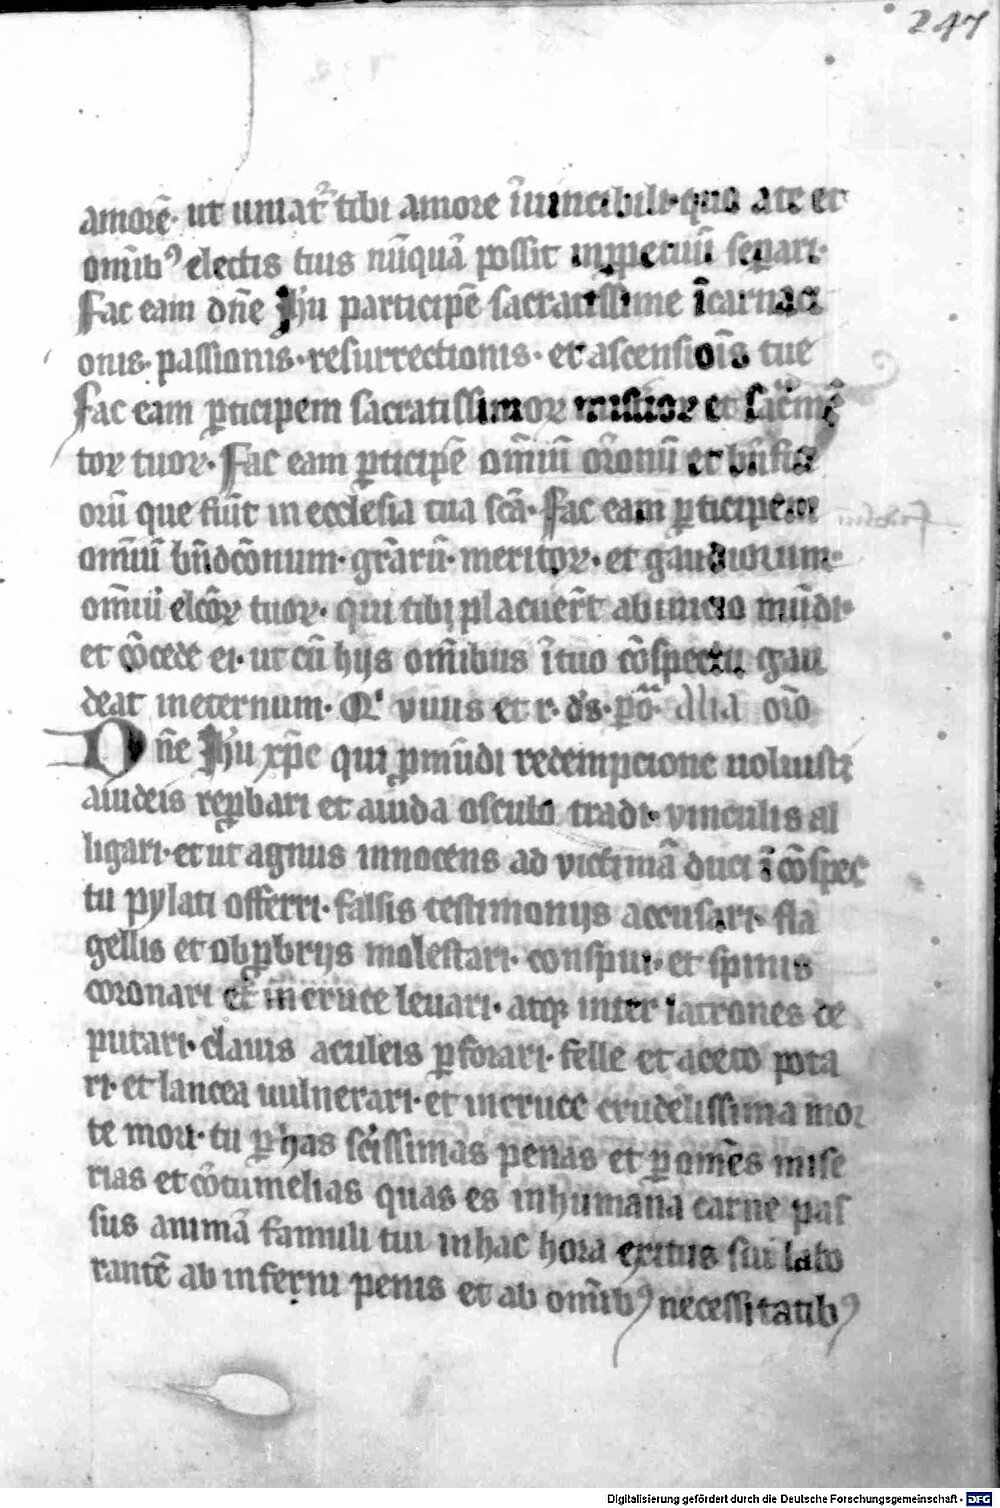 247
amorē· ut uniat᷑ tibi amore īuincibili· quo a te et
omīb⁹ electis tuis nūquā possit inꝑpetuū seꝑari·
Fac eam dn̄e Jhū participē sacratissime īcarnaci
onis· passionis· resurrectionis· et ascensiōis tue
Fac eam ꝑticipem sacratissimoꝝ et
toꝝ tuoꝝ· Fac eam ꝑticipē om̄iū or̄onū et bn̄fici
orū que fiūt in ecclesia tua scā· Fac eam ꝑticipem
om̄iū bn̄dcōnum· gr̄arū· meritoꝝ· et gaudiorum
om̄iū elcōꝝ tuoꝝ· qui tibi placuer̄t ab inicio mūdi·
et cōcede ei· ut cū hijs om̄ibus ī tuo cōspectu gau
deat in eternum· Qͥ viuis et r· ds· ꝑ oīa· Alia or̄o
Dn̄e Jhū xp̄e qui ꝓ mūdi redempcione uoluisti
a iudeis reꝓbari et a iuda osculo tradi· vinculis al
ligari· et ut agnus innocens ad victimā duci ī cōspec
tu pylati offerri· falsis testimonijs accusari· fla
gellis et obꝓbrijs molestari· conspui· et spinis
coronari et in cruce leuari· atqꝫ inter latrones de
putari· clauis aculeis ꝑforari· felle et aceto pota
ri· et lancea uulnerari· et in cruce crudelissima mor
te mori· tu ꝑ has sc̄issimas penas et ꝑ om̄es mise
rias et cōtumelias quas es in humana carne pas
sus animā famuli tui in hac hora exitus sui labo
rantē ab inferni penis et ab om̄ib⁹ necessitatib⁹
Digitalisierung gefördert durch die Deutsche Forschungsgemeinschaft - DFG